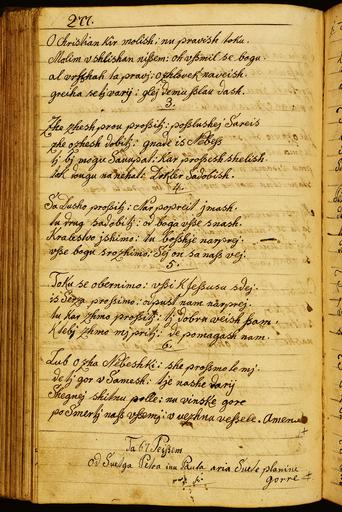 277.
O Christian kir molish: nu pravish toku.
Molim v shlishan nisem: oh vsmil se bogu.
al vrshah ta pravj: o zhlovek naveish.
greika se tj varij: glej zemu slau dash.
3.
Zhe zhesh prou prositj: poslushej
zhe ozhesh dobitj: gnade is Nebess
tj bj mogu Saupat: kar prosesh shelish
tok mogu nanehat: Sadobish.
4.
Sa Dusho prositj: kar popreit jmash.
tu drug sadobitj: od boga vse snash.
Kralestvo jshimo: tu boshje narprej.
vse bogu srozhimo: Sej on sa nass vej.
5.
Toku se obernimo: vsi k Jessusa sdej.
is Serza prosimo: odpust nam narprej.
tu kar zhmo prositj: tj dobru veish sam.
K tebj zhmo mj pritj: de pomagash nam.
6.
Lub ozha Nebeshki: she prosmo le mj.
de tj gor v Samesh: tje nashe
polle: nu vinske gore
po Smertj nass vsemj: v vezhnu vessele. Amen
Ta 67 Pejsem
Od Svetga Petra inu Paula aria Svete planine
gorre